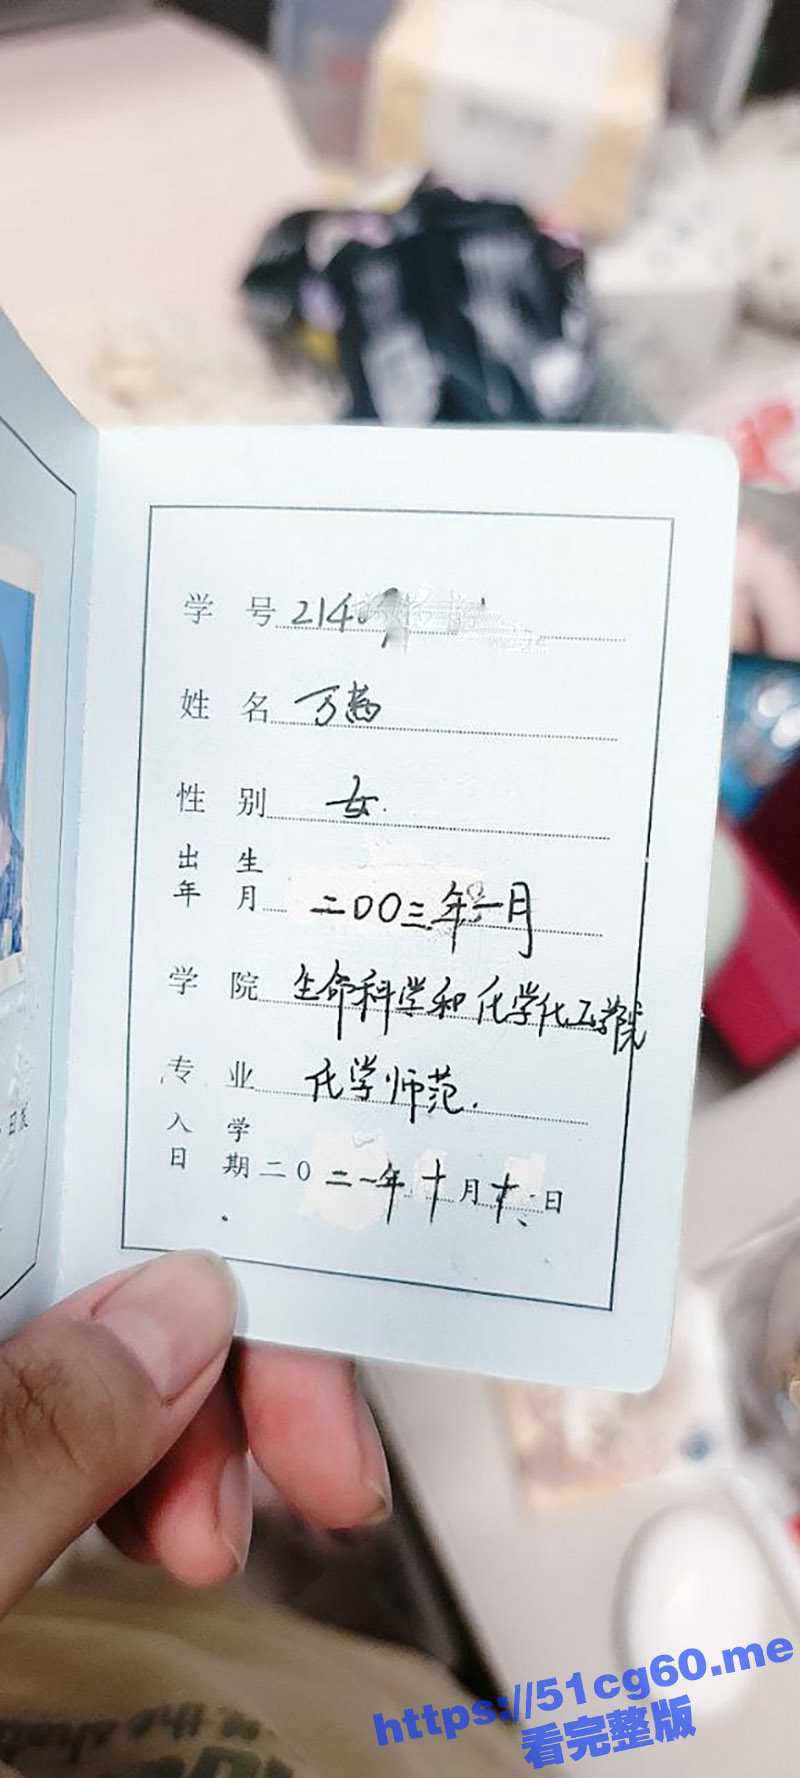 学 号 214
姓 名 万
性 别 女
出 生
年 月 二00三年一月
学 院 生命科学和化学化工学院
专 业 化学师范
入 学
日 期 二0二一年十月十 日
https://51cg60.me
看完整版